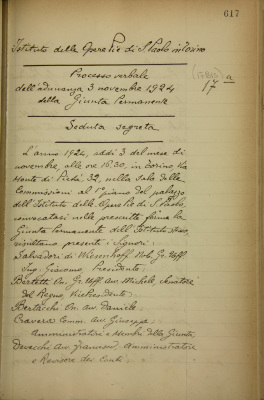 617
Istituto delle Opere Pie di S. Paolo in Torino
Processo verbale
dell'adunanza 3 novembre 1924
della Giunta Permanente
17 a
Seduta segreta
L'anno 1924, addì 3 del mese di
novembre, alle ore 16.30, in Torino Via
Monte di Pietà, 32, nella Sala delle
Commissioni al 1° piano del palazzo
dell'Istituto delle Opere Pie di S. Paolo,
convocatasi nelle prescritte forme la
Giunta Permanente dell'Istituto stesso,
risultano presenti i Signori:
Salvadori di Wiesenhoff Nob. Gr. Uff.
Ing. Giacomo, Presidente;
Bertetti On. Gr. Uff. Avv. Michele, Senatore
del Regno, Vice Presidente;
Bertacchi On. avv. Daniele,
Cravero Comm. Avv. Giuseppe,
Amministratori e Membri della Giunta
Devecchi Avv. Francesco, Amministratore
e Revisore dei Conti;